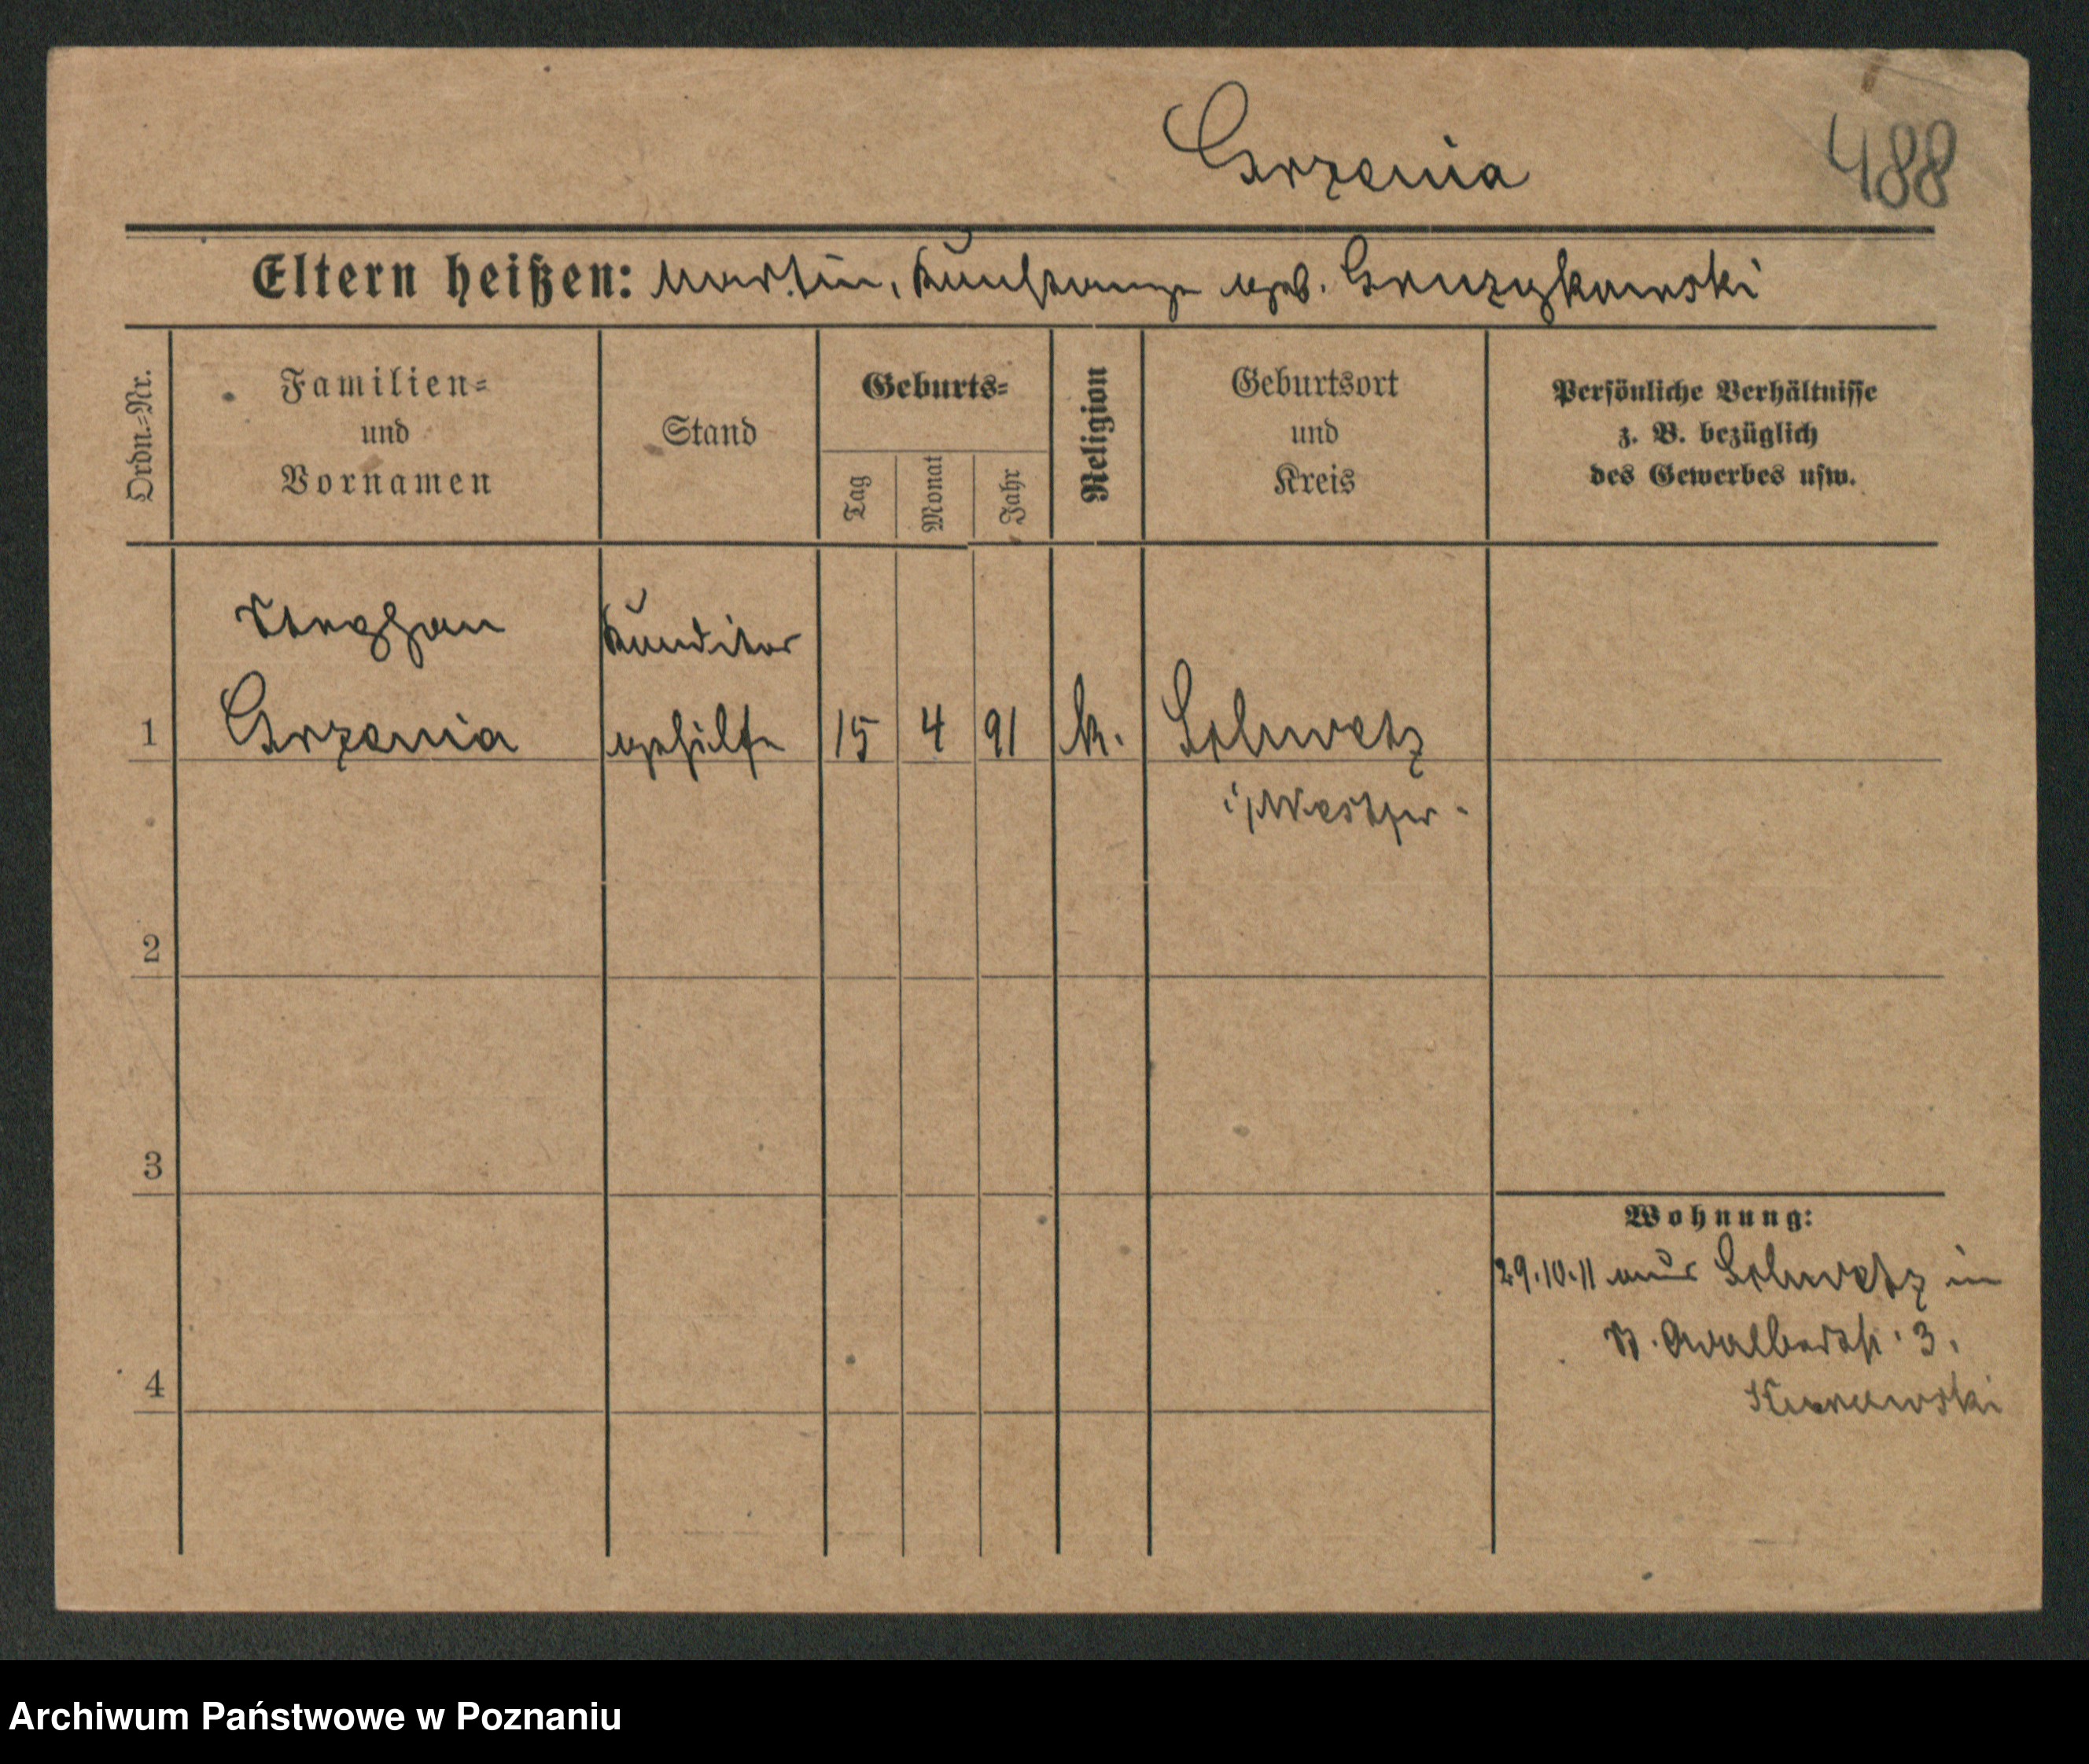 Grzenia
488
Eltern heißen: Martin, Konstanze geb. Gruzykowski
Ordn.=Nr.
Familien=
und
Vornamen
Stand
Geburts=
Tag
Monat
Jahr
Religion
Geburtsort
und
Kreis
Persönliche Verhältnisse
z. B. bezüglich
des Gewerbes usw.
Stephan
Konditor
1 Grzenia gehilfe 15 4 91 k. Schwetz
i/Westpr.
2
3
4
Wohnung:
29.10.11 aus Schwetz in
St. Adalbertstr. 3.
Archiwum Państwowe w Poznaniu